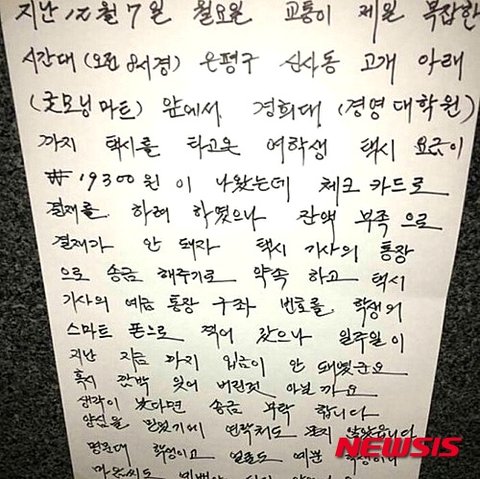 지난 12월 7일 월요일 교통이 제일 복잡한
시간대 (오전 8시경) 은평구 신사동 고개 아래
(굿모닝 마트) 앞에서 경희대 (경영 대학원)
까지 택시를 타고온 여학생 택시 요금이
₩ 19300원 이 나왔는데 체크 카드로
결재를 하려 하였으나 잔액 부족 으로
결재가 안 돼자 택시 기사의 통장
으로 송금 해주기로 약속 하고 택시
기사의 예금 통장 구좌 번호를 학생의
스마트 폰으로 찍어 갔으나 일주일이
지난 지금 까지 입금이 안 돼었군요
혹시 깜박 잊어 버린것 아닐 까요
생각이 났다면 송금 부탁 합니다
양심을 믿었기에 연락처도 묻지 않았습니다
명문대 학생이고 얼굴도 예쁜 학생이니
NEWSIS